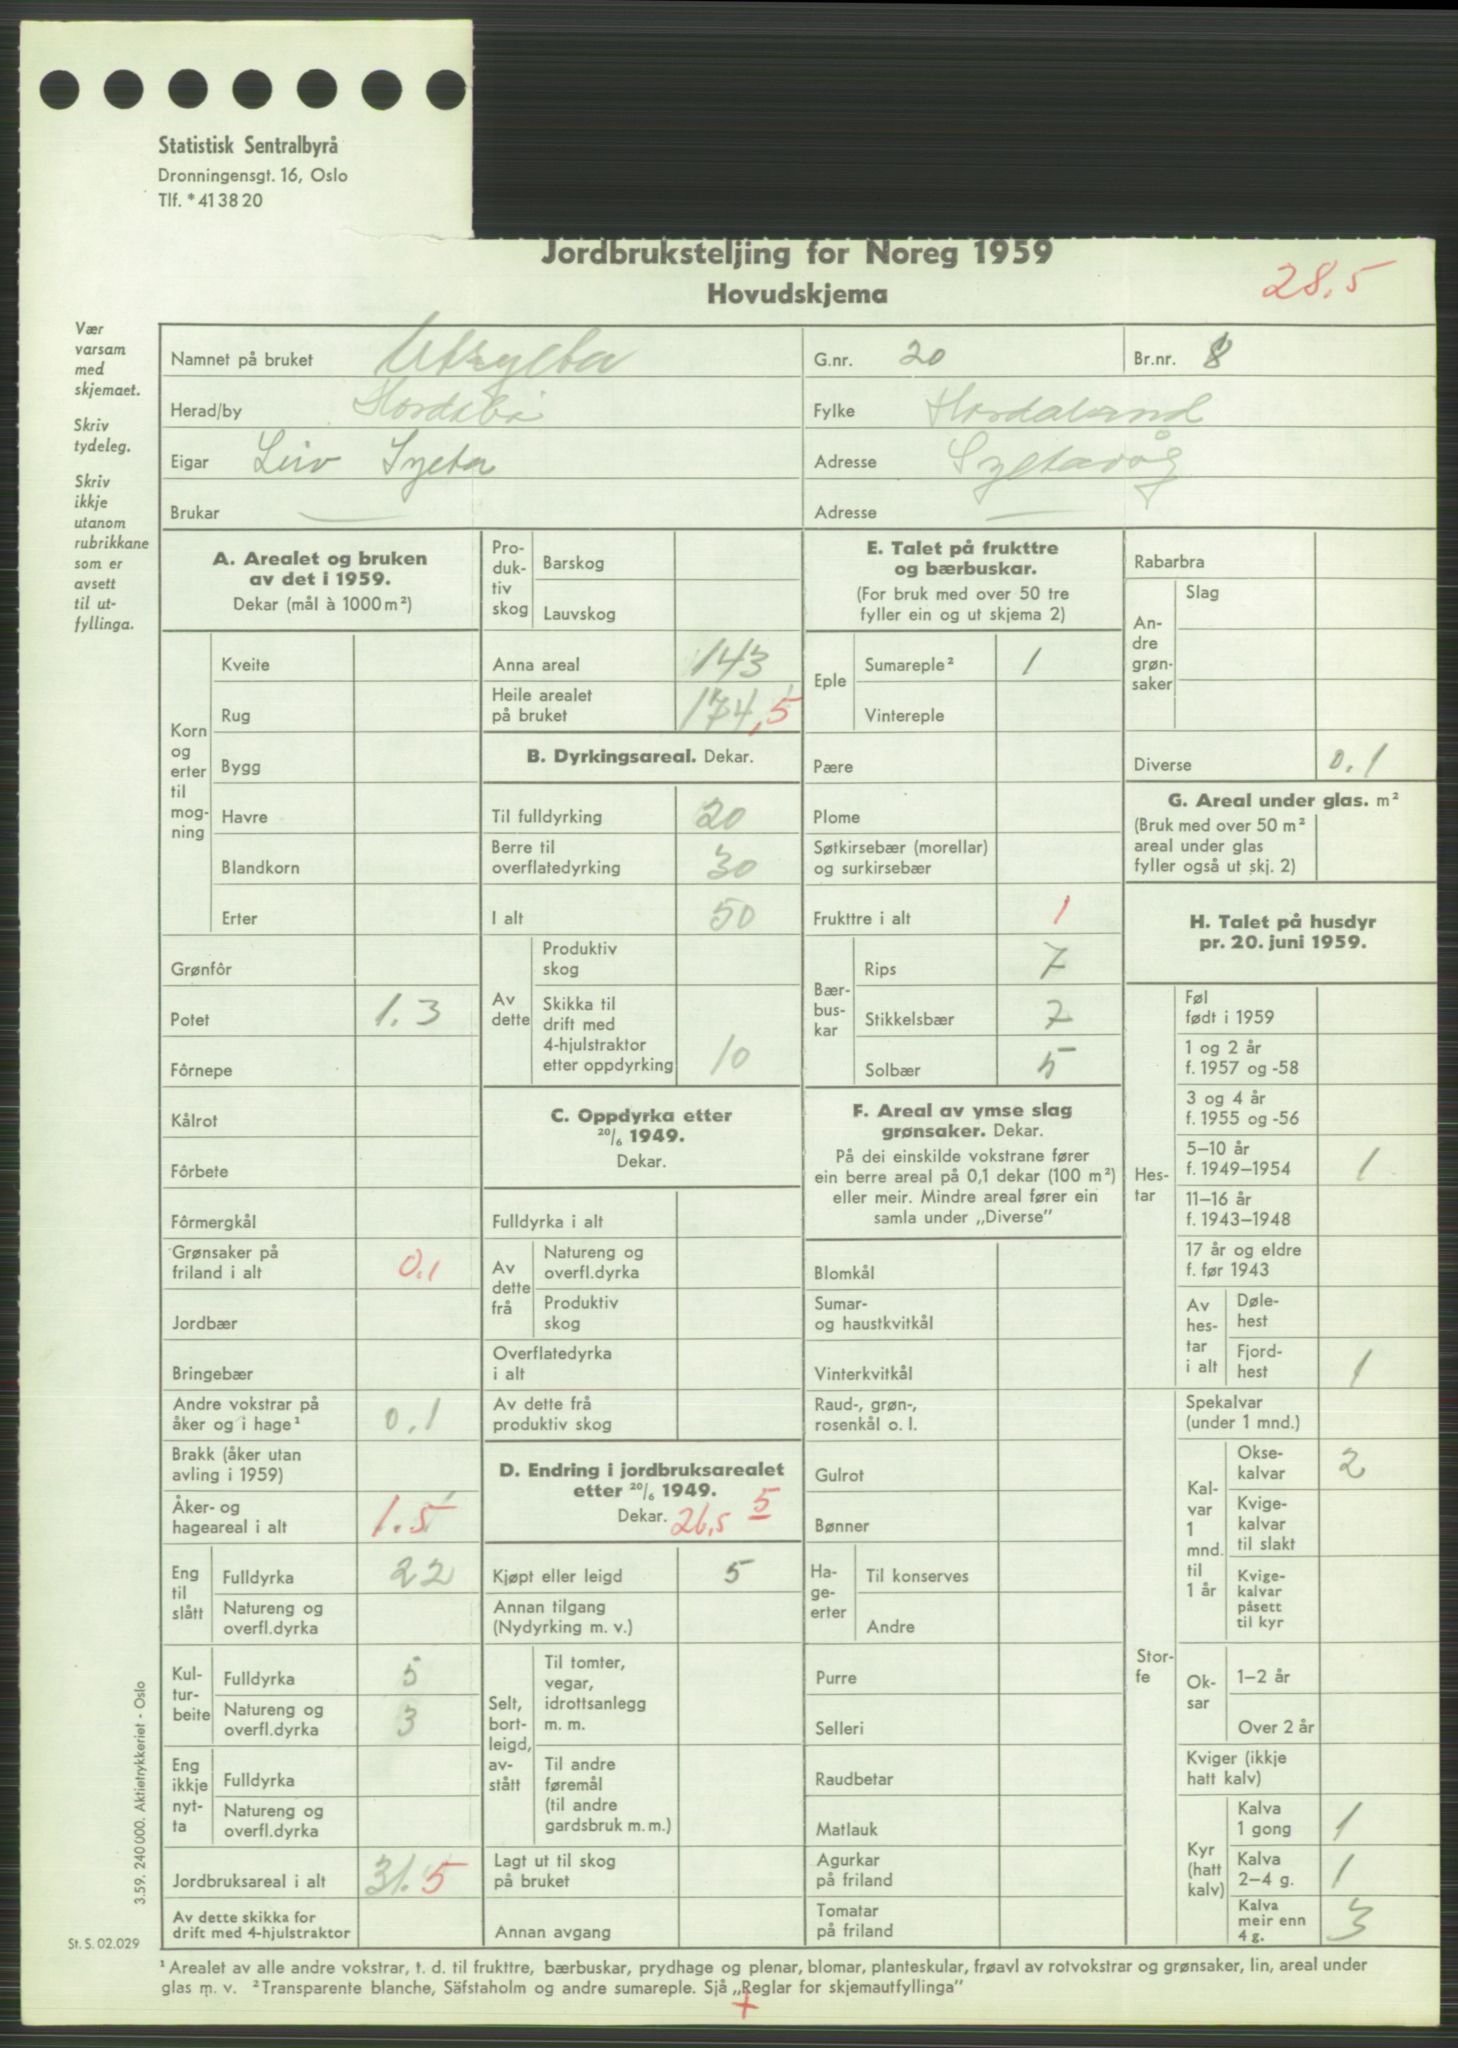 Statistisk Sentralbyrå
Dronningensgt. 16, Oslo
Tlf. *41 38 20
Jordbruksteljing for Noreg 1959
Hovudskjema
28,5
Vær varsam med skjemaet.
Skriv tydeleg.
Skriv ikkje utanom rubrikkane som er avsett til utfyllinga.
Namnet på bruket
G.nr. 20
Br.nr. 8
Herad/by Hordabø
Fylke Hordaland
Eigar Leiv Sylta
Adresse Syltavåg
Brukar —
Adresse —
A. Arealet og bruken
av det i 1959.
Dekar (mål à 1000 m²)
Korn og erter til mogning
Kveite
Rug
Bygg
Havre
Blandkorn
Erter
Grønfôr
Potet 1.3
Fôrnepe
Kålrot
Fôrbete
Fôrmergkål
Grønsaker på
friland i alt 0.1
Jordbær
Bringebær
Andre vokstrar på
åker og i hage¹ 0.1
Brakk (åker utan
avling i 1959)
Åker- og
hageareal i alt 1.5
Eng til slått
Fulldyrka 22
Natureng og
overfl.dyrka
Kulturbeite
Fulldyrka 5
Natureng og
overfl.dyrka 3
Eng ikkje nytta
Fulldyrka
Natureng og
overfl.dyrka
Jordbruksareal i alt 31.5
Av dette skikka for
drift med 4-hjulstraktor
Produktiv skog
Barskog
Lauvskog
Anna areal 143
Heile arealet
på bruket 174,5
B. Dyrkingsareal. Dekar.
Til fulldyrking 20
Berre til
overflatedyrking 30
I alt 50
Av dette
Produktiv
skog
Skikka til
drift med
4-hjulstraktor
etter oppdyrking 10
C. Oppdyrka etter
20/6 1949.
Dekar.
Fulldyrka i alt
Av dette frå
Natureng og
overfl.dyrka
Produktiv
skog
Overflatedyrka
i alt
Av dette frå
produktiv skog
D. Endring i jordbruksarealet
etter 20/6 1949.
Dekar. 26,5 5
Kjøpt eller leigd 5
Annan tilgang
(Nydyrking m. v.)
Selt, bortleigd, avstått
Til tomter,
vegar,
idrottsanlegg
m. m.
Til andre
føremål
(til andre
gardsbruk m. m.)
Lagt ut til skog
på bruket
Annan avgang
E. Talet på frukttre
og bærbuskar.
(For bruk med over 50 tre
fyller ein og ut skjema 2)
Eple
Sumareple² 1
Vintereple
Pære
Plome
Søtkirsebær (morellar)
og surkirsebær
Frukttre i alt 1
Bærbuskar
Rips 7
Stikkelsbær 7
Solbær 5
F. Areal av ymse slag
grønsaker. Dekar.
På dei einskilde vokstrane fører
ein berre areal på 0,1 dekar (100 m²)
eller meir. Mindre areal fører ein
samla under „Diverse”
Blomkål
Sumar-
og haustkvitkål
Vinterkvitkål
Raud-, grøn-,
rosenkål o. l.
Gulrot
Bønner
Hageerter
Til konserves
Andre
Purre
Selleri
Raudbetar
Matlauk
Agurkar
på friland
Tomatar
på friland
Rabarbra
Andre grønsaker
Slag
Diverse 0.1
G. Areal under glas. m²
(Bruk med over 50 m²
areal under glas
fyller også ut skj. 2)
H. Talet på husdyr
pr. 20. juni 1959.
Hestar
Føl
født i 1959
1 og 2 år
f. 1957 og -58
3 og 4 år
f. 1955 og -56
5–10 år
f. 1949–1954 1
11–16 år
f. 1943–1948
17 år og eldre
f. før 1943
Av hestar i alt
Dølehest
Fjordhest 1
Storfe
Spekalvar
(under 1 mnd.)
Kalvar 1 mnd. til 1 år
Oksekalvar 2
Kvigekalvar
til slakt
Kvigekalvar
påsett
til kyr
Oksar
1–2 år
Over 2 år
Kviger (ikkje
hatt kalv)
Kyr (hatt kalv)
Kalva
1 gong 1
Kalva
2–4 g. 1
Kalva
meir enn
4 g. 3
3.59. 240 000. Aktietrykkeriet - Oslo
St. S. 02.029
¹ Arealet av alle andre vokstrar, t. d. til frukttre, bærbuskar, prydhage og plenar, blomar, planteskular, frøavl av rotvokstrar og grønsaker, lin, areal under
glas m. v. ² Transparente blanche, Säfstaholm og andre sumareple. Sjå „Reglar for skjemautfyllinga”
+